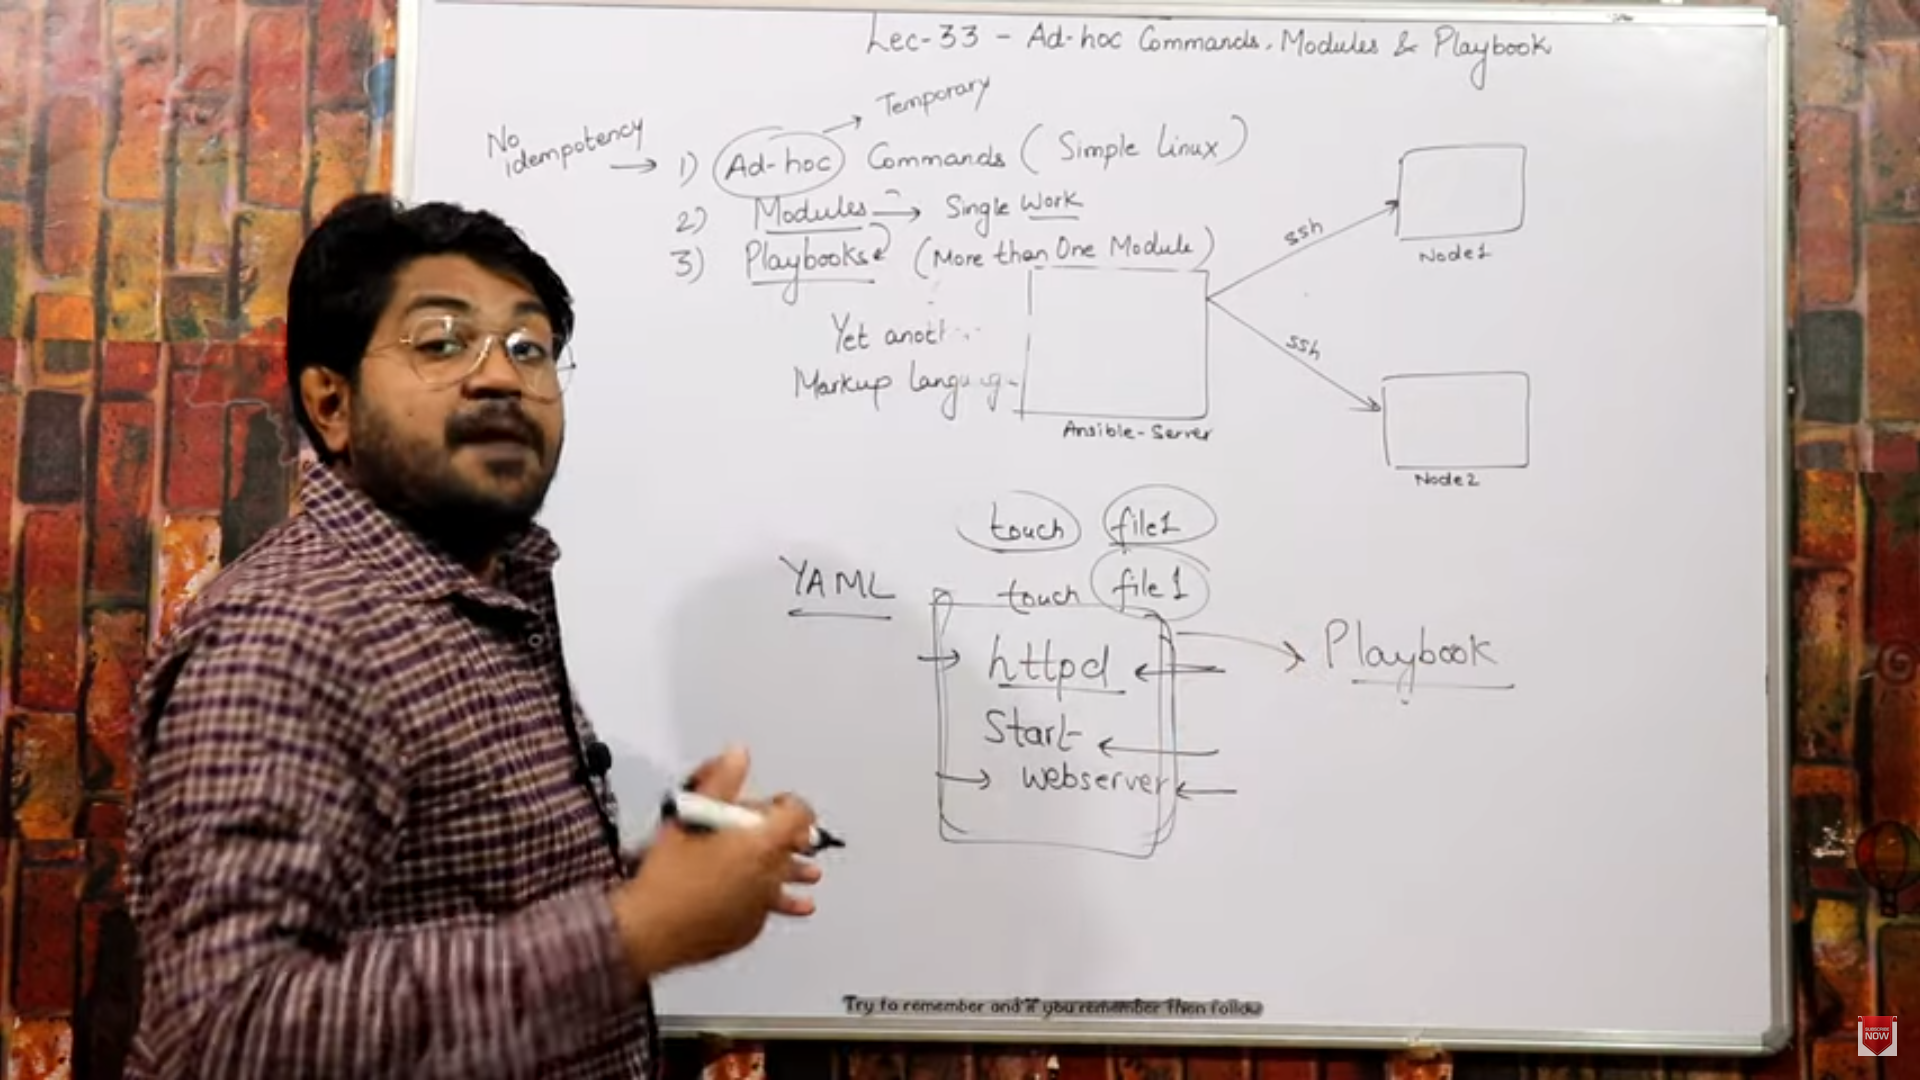 Lec-33 - Ad-hoc Commands, Modules & Playbook
Temporary
No
idempotency
1) Ad-hoc Commands (Simple Linux)
2) Modules → Single Work
3) Playbooks (More than One Module)
Yet
Markup
ssh
Node1
ssh
Node2
Ansible-Server
touch file1
YAML
touch file1
httpd
Playbook
Start
webserver
Try to remember and if you remember then follow
SUBSCRIBE
NOW